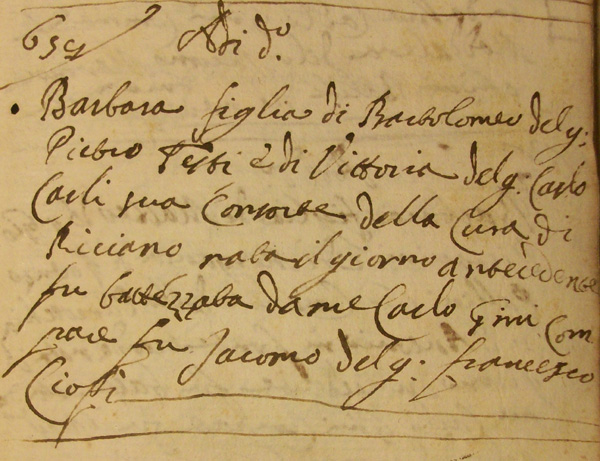 659 Adi d.o
Barbara figlia di Bartolomeo del q:
Pietro Testi e di Vittoria del q: Carlo
Carli sua Consorte della Cura di
Riciano nata il giorno antecedente
fu battezzata da me Carlo Gini Com
pare fu Jacomo del q: francesco
Cioffi